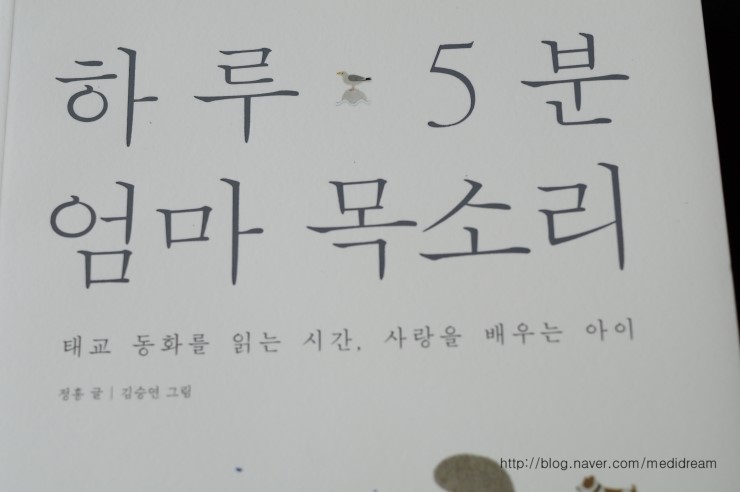 하루 5분
엄마 목소리
태교 동화를 읽는 시간, 사랑을 배우는 아이
정홍 글 | 김승연 그림
http://blog.naver.com/medidream